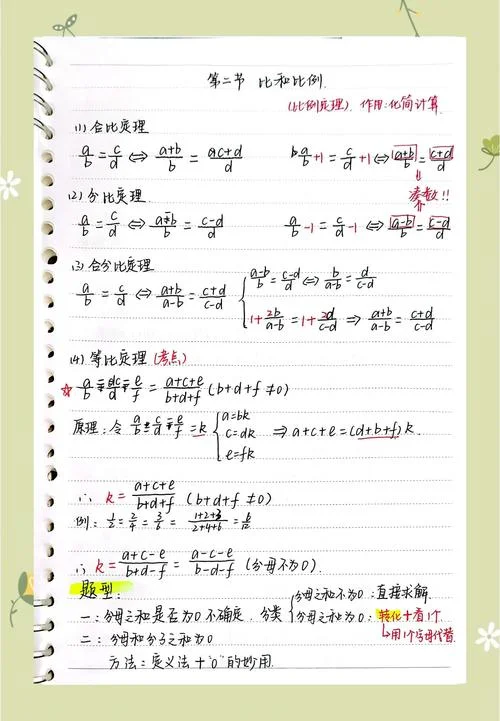 第二节 比和比例.
(比例定理). 作用:化简计算
(1) 合比定理
a/b = c/d ⇔ (a+b)/b = (c+d)/d    a/b +1 = c/d +1 ⇔ (a+b)/b = (c+d)/d
凑数!!
(2) 分比定理
a/b = c/d ⇔ (a-b)/b = (c-d)/d    a/b -1 = c/d -1 ⇔ (a-b)/b = (c-d)/d
(3) 合分比定理
a/b = c/d ⇔ (a+b)/(a-b) = (c+d)/(c-d) { (a-b)/b = (c-d)/d ⇔ b/(a-b) = d/(c-d)
1+ 2b/(a-b) = 1+ 2d/(c-d) ⇒ (a+b)/(a-b) = (c+d)/(c-d)
(4) 等比定理 (考点)
☆ a/b = c/d = e/f = (a+c+e)/(b+d+f) (b+d+f ≠0)
原理:令 a/b = c/d = e/f = k { a=bk
c=dk ⇒ a+c+e=(d+b+f)k.
e=fk
∴ k = (a+c+e)/(b+d+f) (b+d+f ≠0)
例: 1/2 = 2/4 = 3/6 = (1+2+3)/(2+4+6) = 6/12
∴ k = (a+c-e)/(b+d-f) = (a-c-e)/(b-d-f) (分母不为0).
题型:
一:分母之和是否为0不确定, 分类 { 分母之和不为0:直接求解.
分母之和为0:转化+看1个.
↳用1个字母代替.
二:分母和分子之和为0
方法:定义法+"0"的妙用.